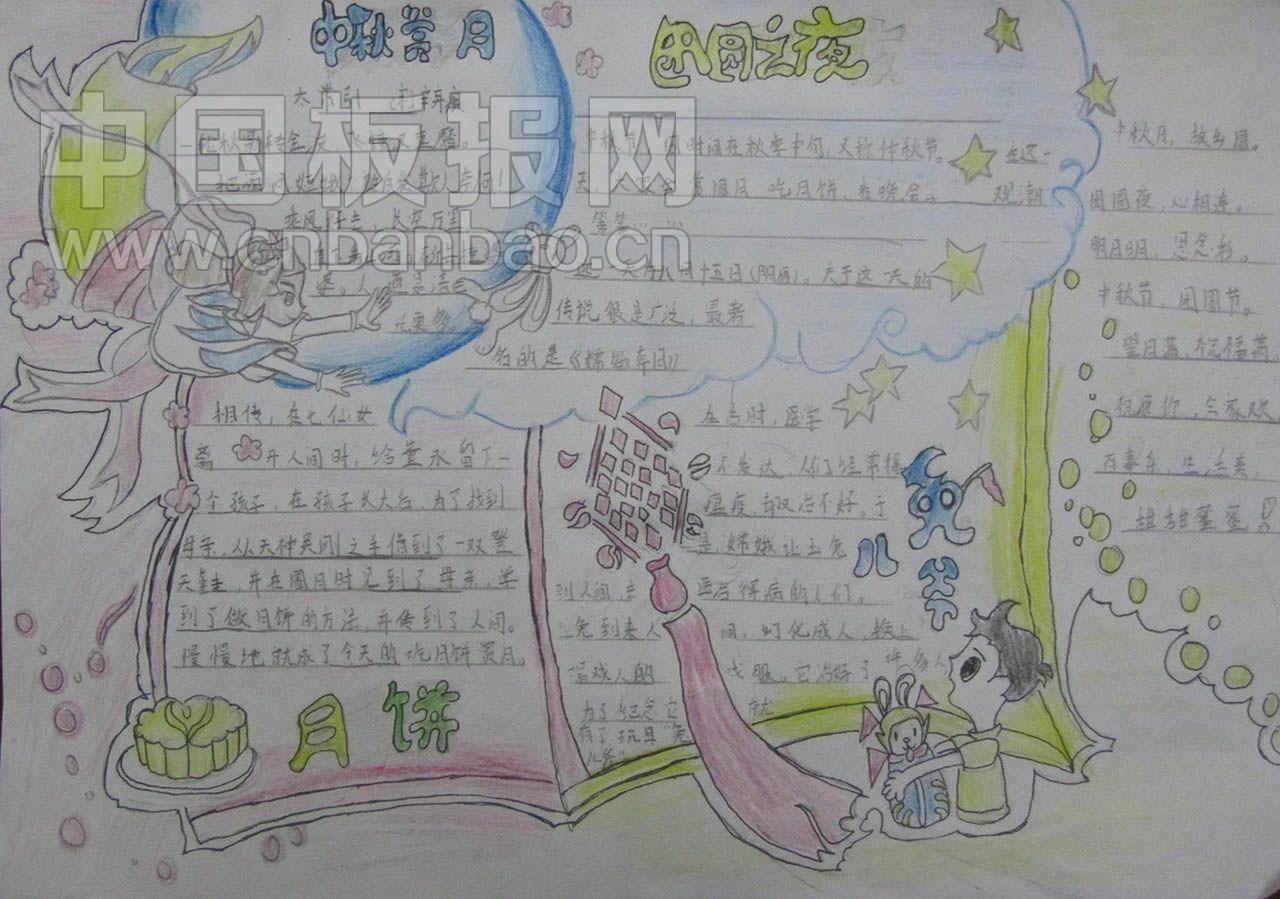 中秋赏月
团圆之夜
中国板报网
www.cnbanbao.cn
太常引
一轮秋影转金波，飞镜又重磨。
把酒问姮娥：被白发欺人奈何！
乘风
长空万里
人道是清
光更多
中秋节，因时间在秋季中旬，又称仲秋节。在这一
天，人们会赏圆月、吃月饼、看晚会、观潮
等等……
八月十五日（阴历）。关于这一天的
传说很是广泛，最著
名的是《嫦娥奔月》
中秋月，故乡圆。
团圆夜，心相连。
明月明，思念
中秋节，团圆节。
望月满，祝福满
祝愿你，合家欢
百事乐，生活美，
甜甜蜜蜜。！
相传，在七仙女
离开人间时，给董永留下一
个孩子，在孩子长大后，为了找到
母亲，从天神吴刚之手借到了一双登
天鞋，并在圆月时见到了母亲，学
到了做月饼的方法，并传到了人间。
慢慢地就成了今天的吃月饼赏月。
月饼
在当时，医学
不发达，人们经常得
瘟疫，却又治不好。于
是，嫦娥让玉兔
到人间，去医治得病的人们。
兔到来人间，幻化成人，换上
戏服。它治好了许多人
为了纪念它，就
有了玩具“兔
儿爷”
兔儿爷